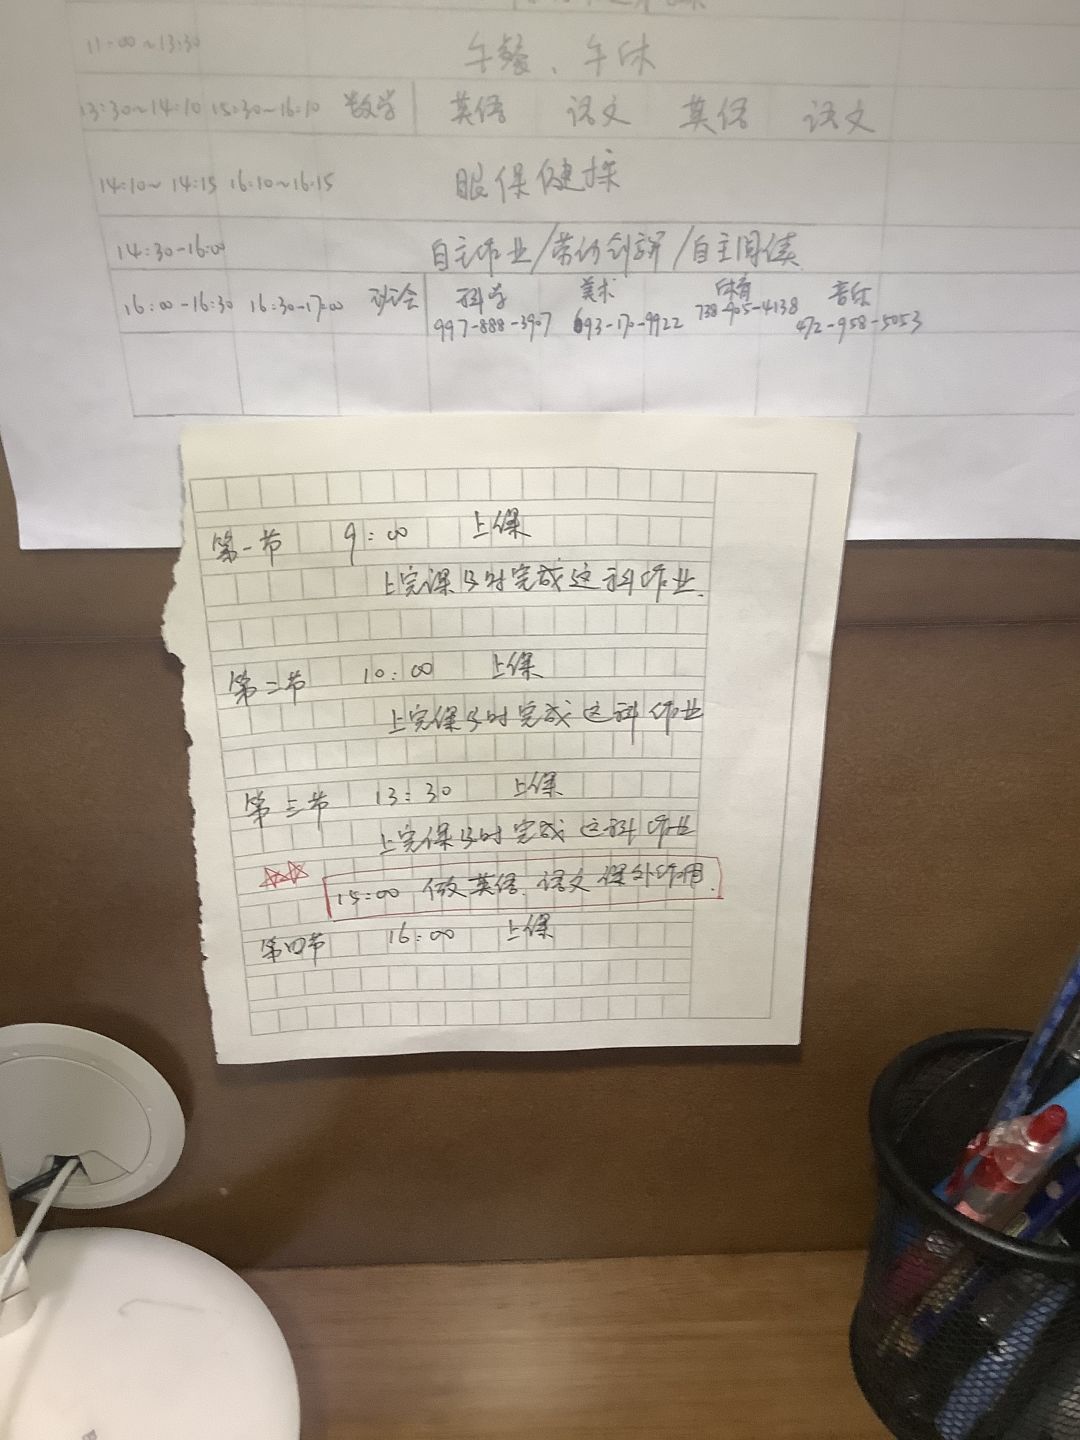 11:00~13:30 午餐、午休
13:30~14:10 15:30~16:10 数学 英语 语文 英语 语文
14:10~14:15 16:10~16:15 眼保健操
14:30-16:00 自主作业/劳动创新/自主阅读
16:00-16:30 16:30-17:00 班会 科学 美术 体育 音乐
997-888-3907 693-170-9922 738-905-4138 472-958-5053
第一节 9:00 上课
上完课及时完成这科作业.
第二节 10:00 上课
上完课及时完成这科作业
第三节 13:30 上课
上完课及时完成这科作业
15:00 做英语、语文课外作用.
第四节 16:00 上课